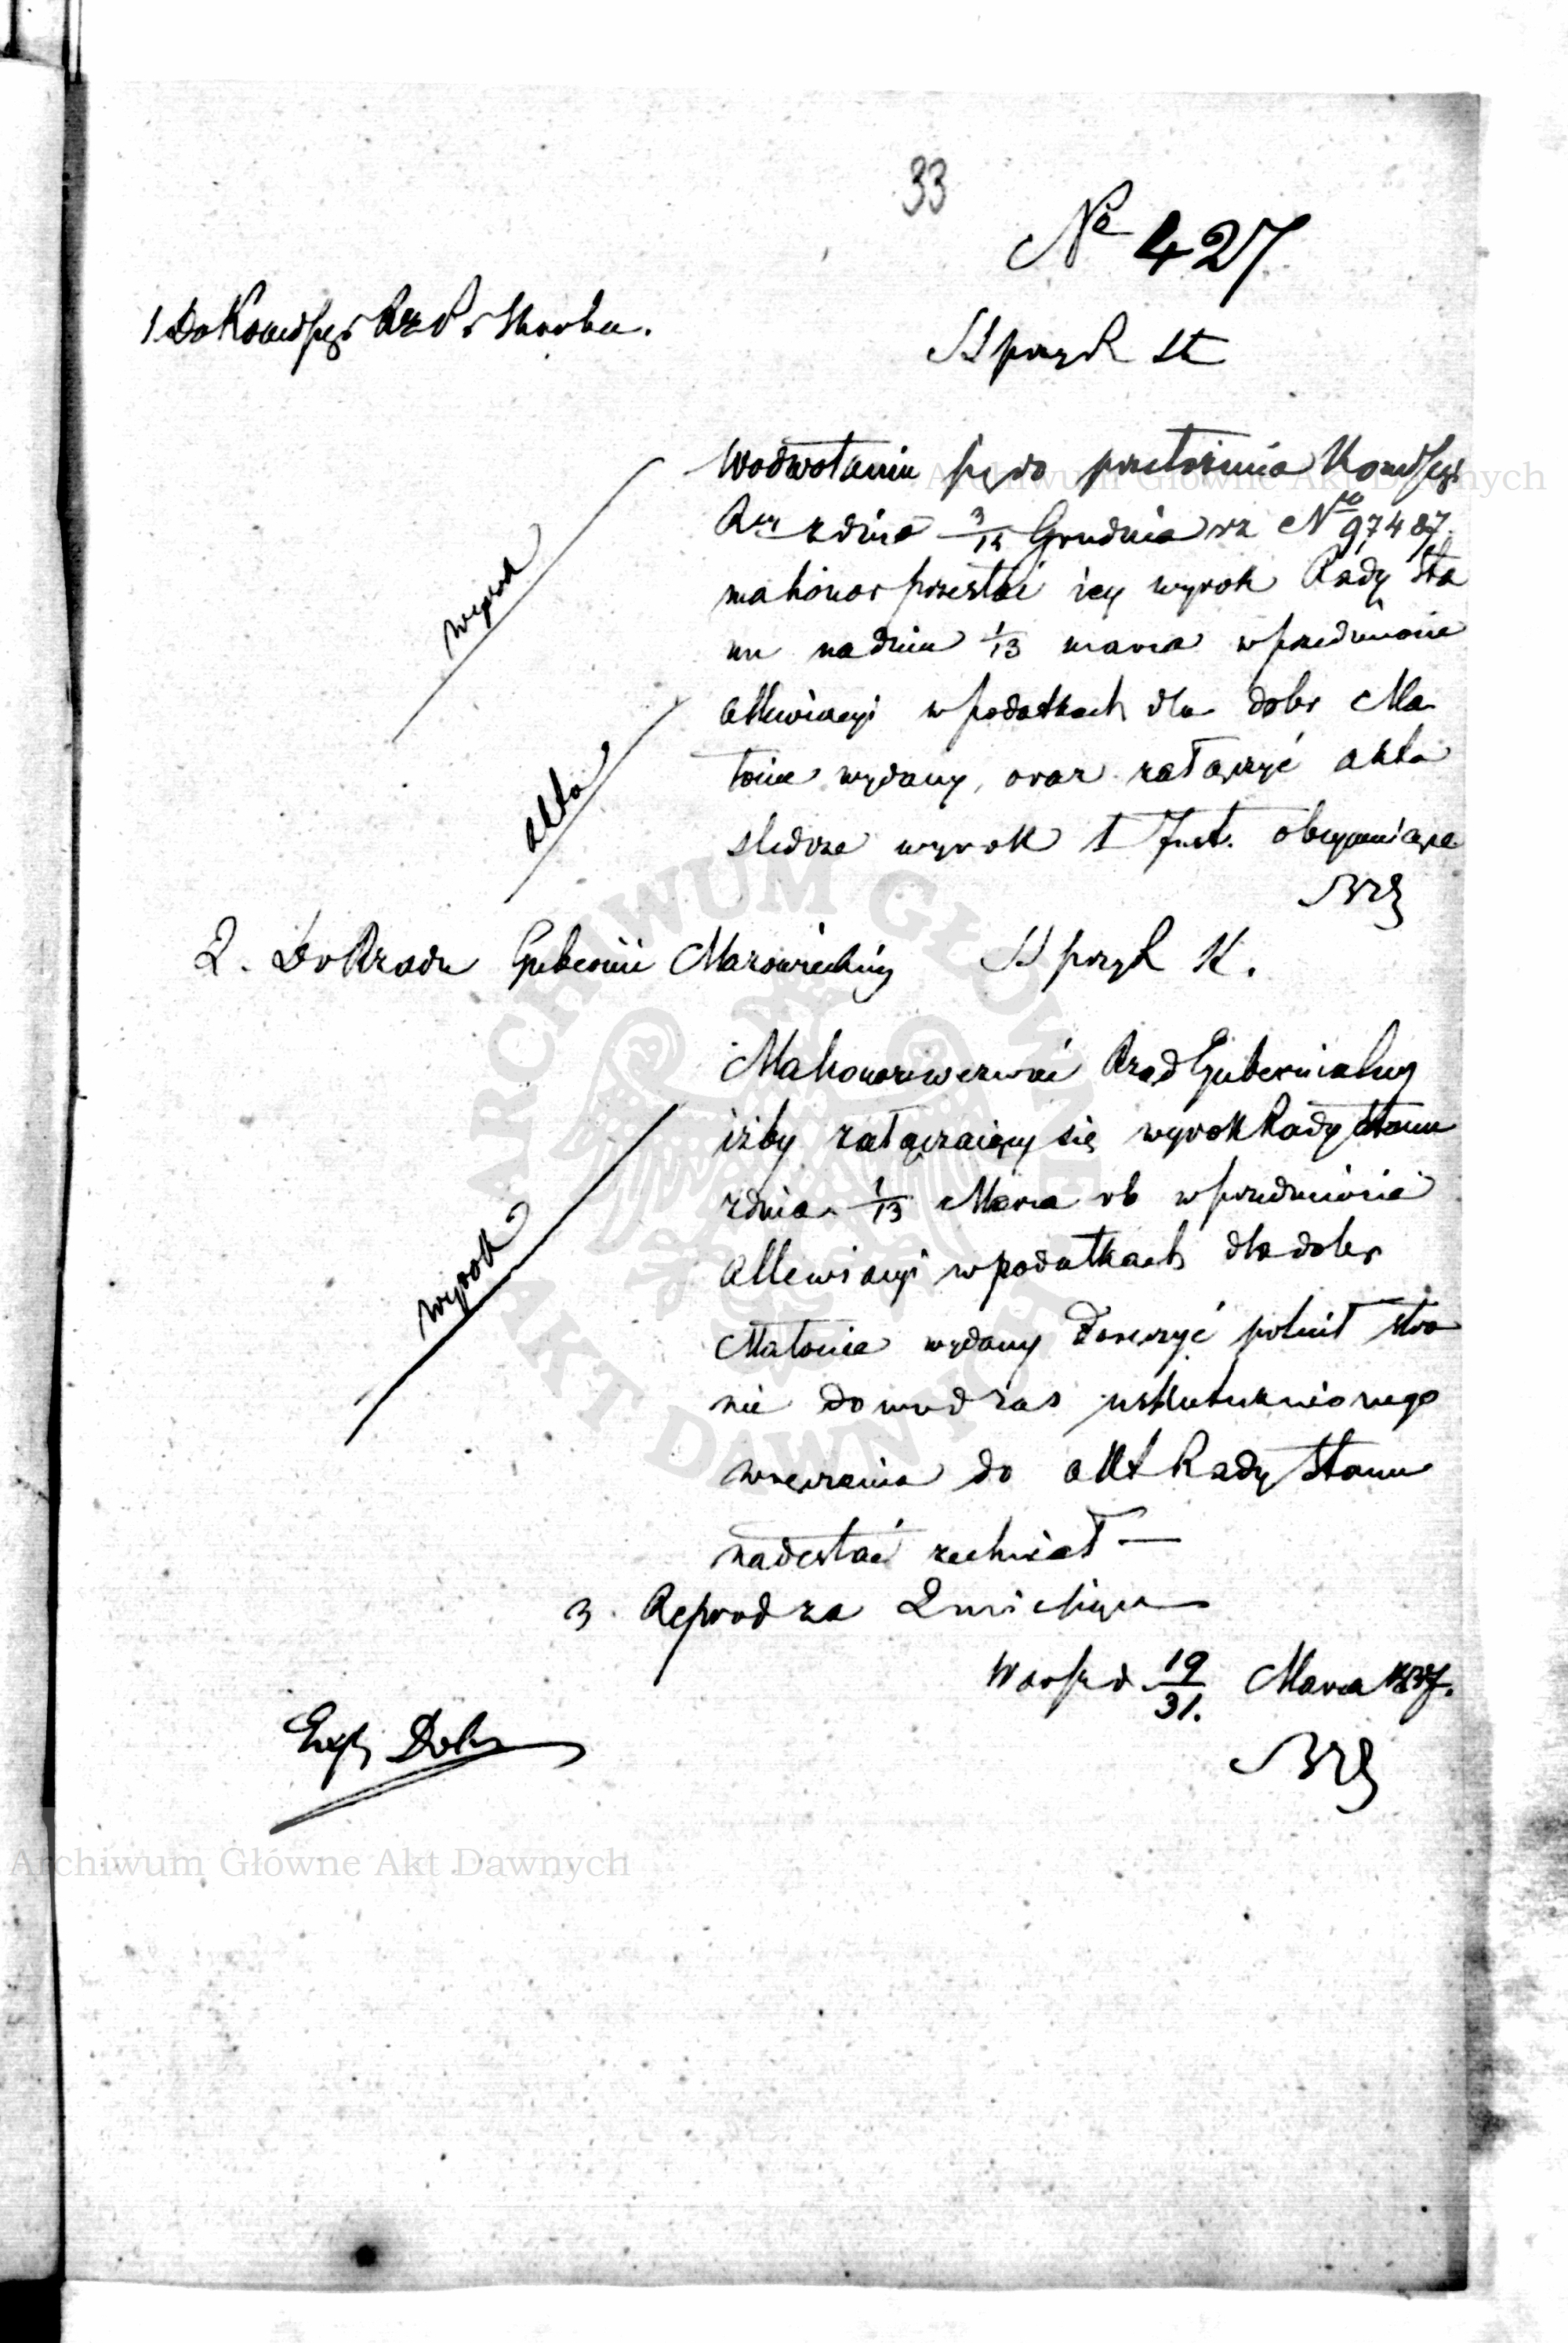 33
No 427
1. Do Kommissyi Rz P i Skarbu.
S przyk St
Wodwołaniu się do przełożenia Kommissyi
Rz z dnia 3/15 Grudnia rz No 97487
ma honor przesłać iey wyrok Rady Sta
nu na dniu 1/13 marca w przedmiocie
allewiacyi w podatkach dla dobr Ma
tonie wydany, oraz załączyć akta
śledcze wyrok I Inst. obeymujące
wyrok
akta
2. Do Rządu Gubernii Mazowieckiey S przyk K.
Ma honor wezwać Rząd Gubernialny
iżby załączaiący się wyrok Rady Stanu
z dnia 1/13 Marca rb w przedmiocie
allewiacyi w podatkach dla dobr
Matonie wydany doręczyć polecił stro
nie dowód zaś uskutecznionego
wręczenia do akt Rady Stanu
nadesłać zechciał —
wyrok
3. Reprod za 2 miesiące
Warsz d 19/31. Marca 1837.